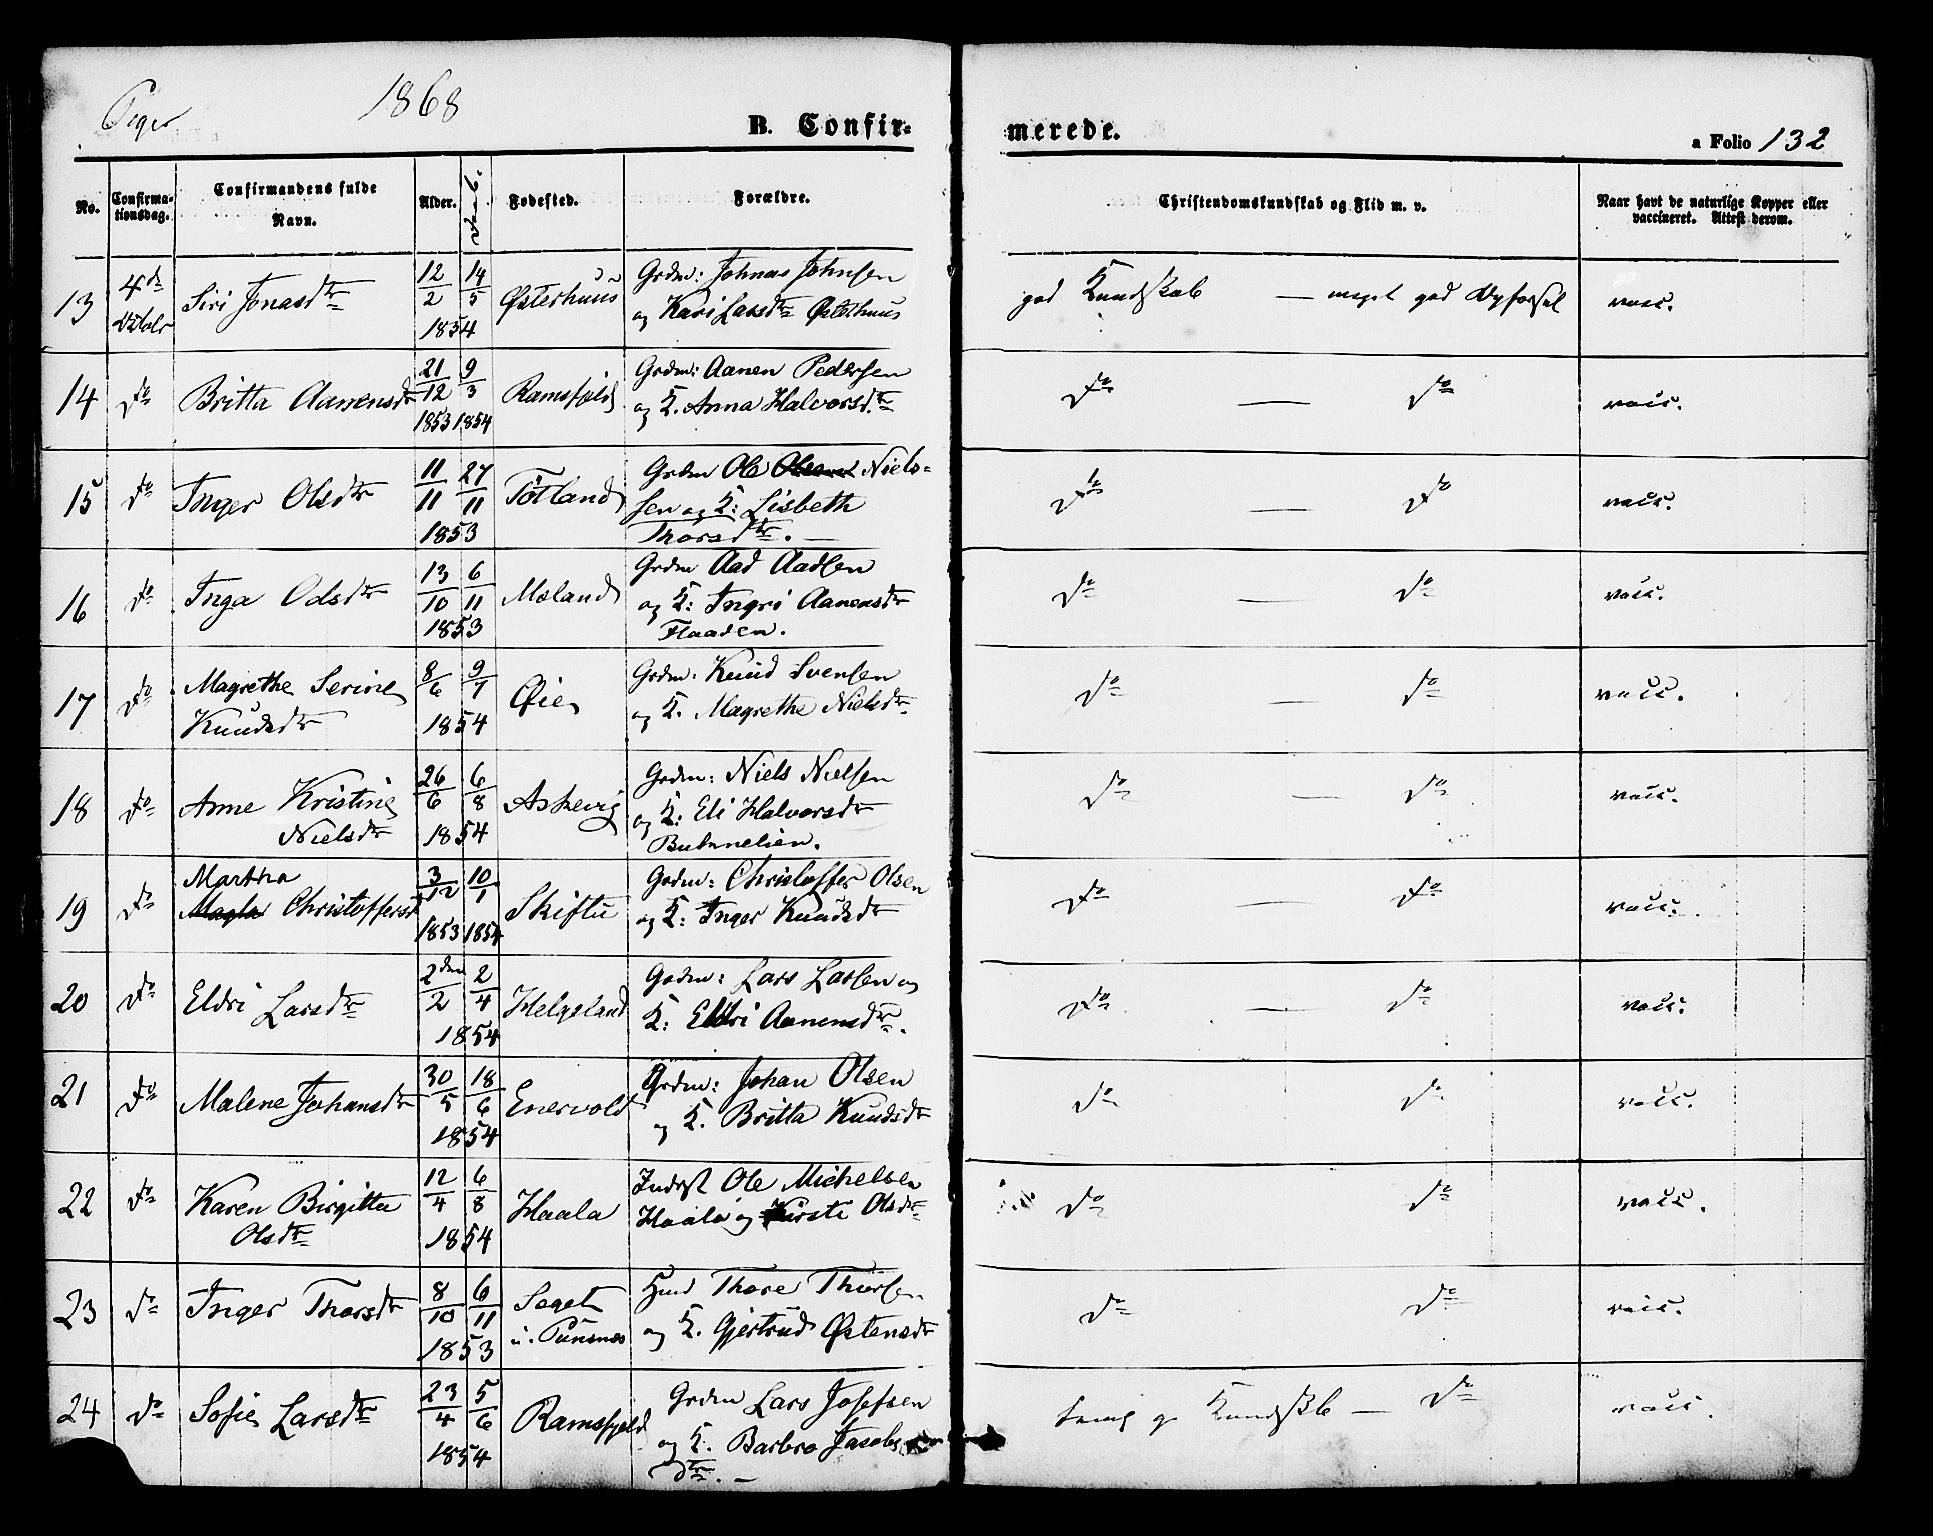 Piger
1868
B. Confir-
merede.
a Folio 132
No.
Confirma-
tionsdag.
Confirmandens fulde
Navn.
Alder.
Fødested.
Forældre.
Christendomskundskab og Flid m. v.
Naar havt de naturlige Kopper eller
vaccineret. Attest derom.
13
4de
Octobr
Siri Jonasdtr
12/2 14/5
1854
Østerhuus
Grdm: Johnas Johnsen
og Kari Larsdtr Østerhuus
god Kundskab — meget god Opførsel
vacc.
14 do Britta Aanensdtr
21/12 9/3
1853 1854
Ramsfjeld
Grdm: Aanen Pedersen
og K. Anna Halvorsdtr
do — do
vacc.
15 do Inger Olsdtr
11/11 27/11
1853
Tøtland
Grdm Ole Niels-
sen og K: Lisbeth
Thorsdtr. —
do — do
vacc.
16 do Inga Odsdtr
13/10 6/11
1853
Mæland
Grdm Aad Aadsen
og K: Ingri Aanensdtr
Flaaden.
do — do
vacc.
17 do Magrethe Serine
Knudsdtr
8/6 9/7
1854
Øie
Grdm. Knud Svensen
og K. Magrethe Nielsdtr
do — do
vacc.
18 do Anne Kristine
Nielsdtr
26/6 6/8
1854
Askevig
Grdm: Niels Nielsen
og K: Eli Halvorsdtr
do — do
vacc.
19 do
Martha
Magla Christoffersd
3/12 10/1
1853 1854
Skiftu
Grdm: Christoffer Olsen
og K: Inger Knudsdtr
do — do
vacc.
20 do Eldri Larsdtr
2den/2 2/4
1854
Helgeland
Grdm: Lars Larsen og
K: Eldri Aanensdtr.
do — do
vacc.
21 do Malene Johansdtr
30/5 18/6
1854
Enervold
Grdm: Johan Olsen
og K. Britta Knudsdtr
do do
vacc.
22 do Karen Birgitta
Olsdtr
12/4 6/8
1854
Haala
Inderst Ole Michelsen
Haala og Kirsti Olsdtr
do do
vacc.
23 do Inger Thorsdtr
8/10 6/11
1853
Saget
u. Punsnes
Huusmd Thore Thorsen
og K. Gjertrud Østensdtr
do do
vacc.
24 do Sofie Larsdtr
23/4 5/6
1854
Ramsfjeld
Grdm Lars Josefsen
og K. Barbro Jacobs
dtr. —
Kundskb — do
vacc.